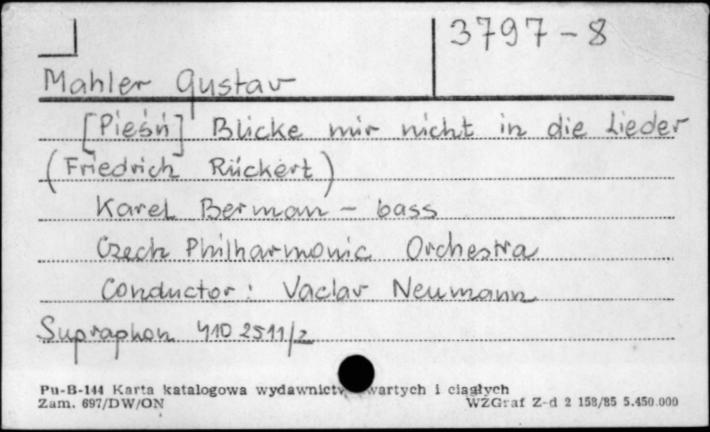 3797-8
Mahler Gustav
[Pieśń] Blicke mir nicht in die Lieder
(Friedrich Rückert)
Karel Berman - bass
Czech Philharmonic Orchestra
Conductor: Vaclav Neumann
Supraphon 410 2511/2
Pu-B-144 Karta katalogowa wydawnictw zwartych i ciągłych
Zam. 697/DW/ON WZGraf Z-d 2 158/85 5.450.000